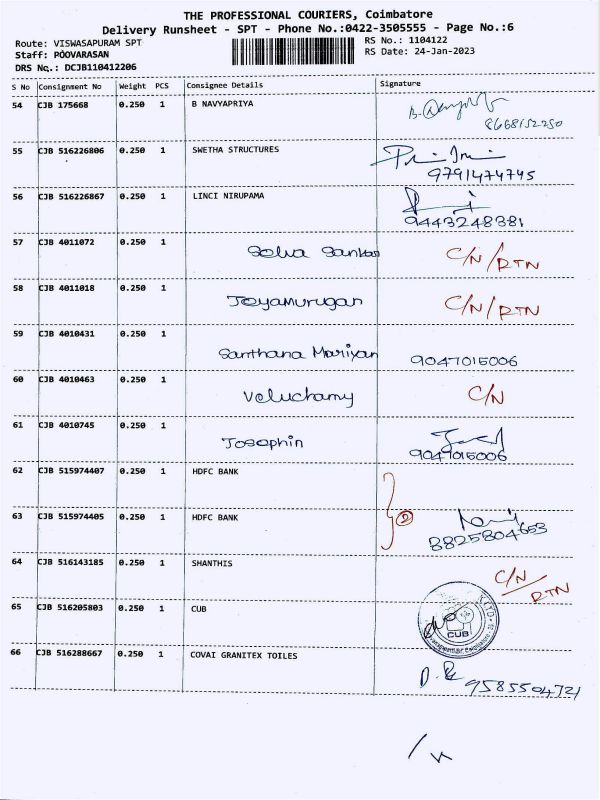 THE PROFESSIONAL COURIERS, Coimbatore
Delivery Runsheet - SPT - Phone No.:0422-3505555 - Page No.:6
Route: VISWASAPURAM SPT RS No.: 1104122
Staff: POOVARASAN RS Date: 24-Jan-2023
DRS No.: DCJB110412206
S No Consignment No Weight PCS Consignee Details Signature
54 CJB 175668 0.250 1 B NAVYAPRIYA
8668152250
55 CJB 516226806 0.250 1 SWETHA STRUCTURES
9791474745
56 CJB 516226867 0.250 1 LINCI NIRUPAMA
9443248381
57 CJB 4011072 0.250 1 Selva Sankar C/N/RTN
58 CJB 4011018 0.250 1 Jeyamurugan C/N/RTN
59 CJB 4010431 0.250 1 Santhana Mariyan 9047015006
60 CJB 4010463 0.250 1 Veluchamy C/N
61 CJB 4010745 0.250 1 Josephin
9047015006
62 CJB 515974407 0.250 1 HDFC BANK
2
63 CJB 515974405 0.250 1 HDFC BANK
8825804653
64 CJB 516143185 0.250 1 SHANTHIS C/N/RTN
65 CJB 516205803 0.250 1 CUB
CUB
66 CJB 516288667 0.250 1 COVAI GRANITEX TOILES
9585504721